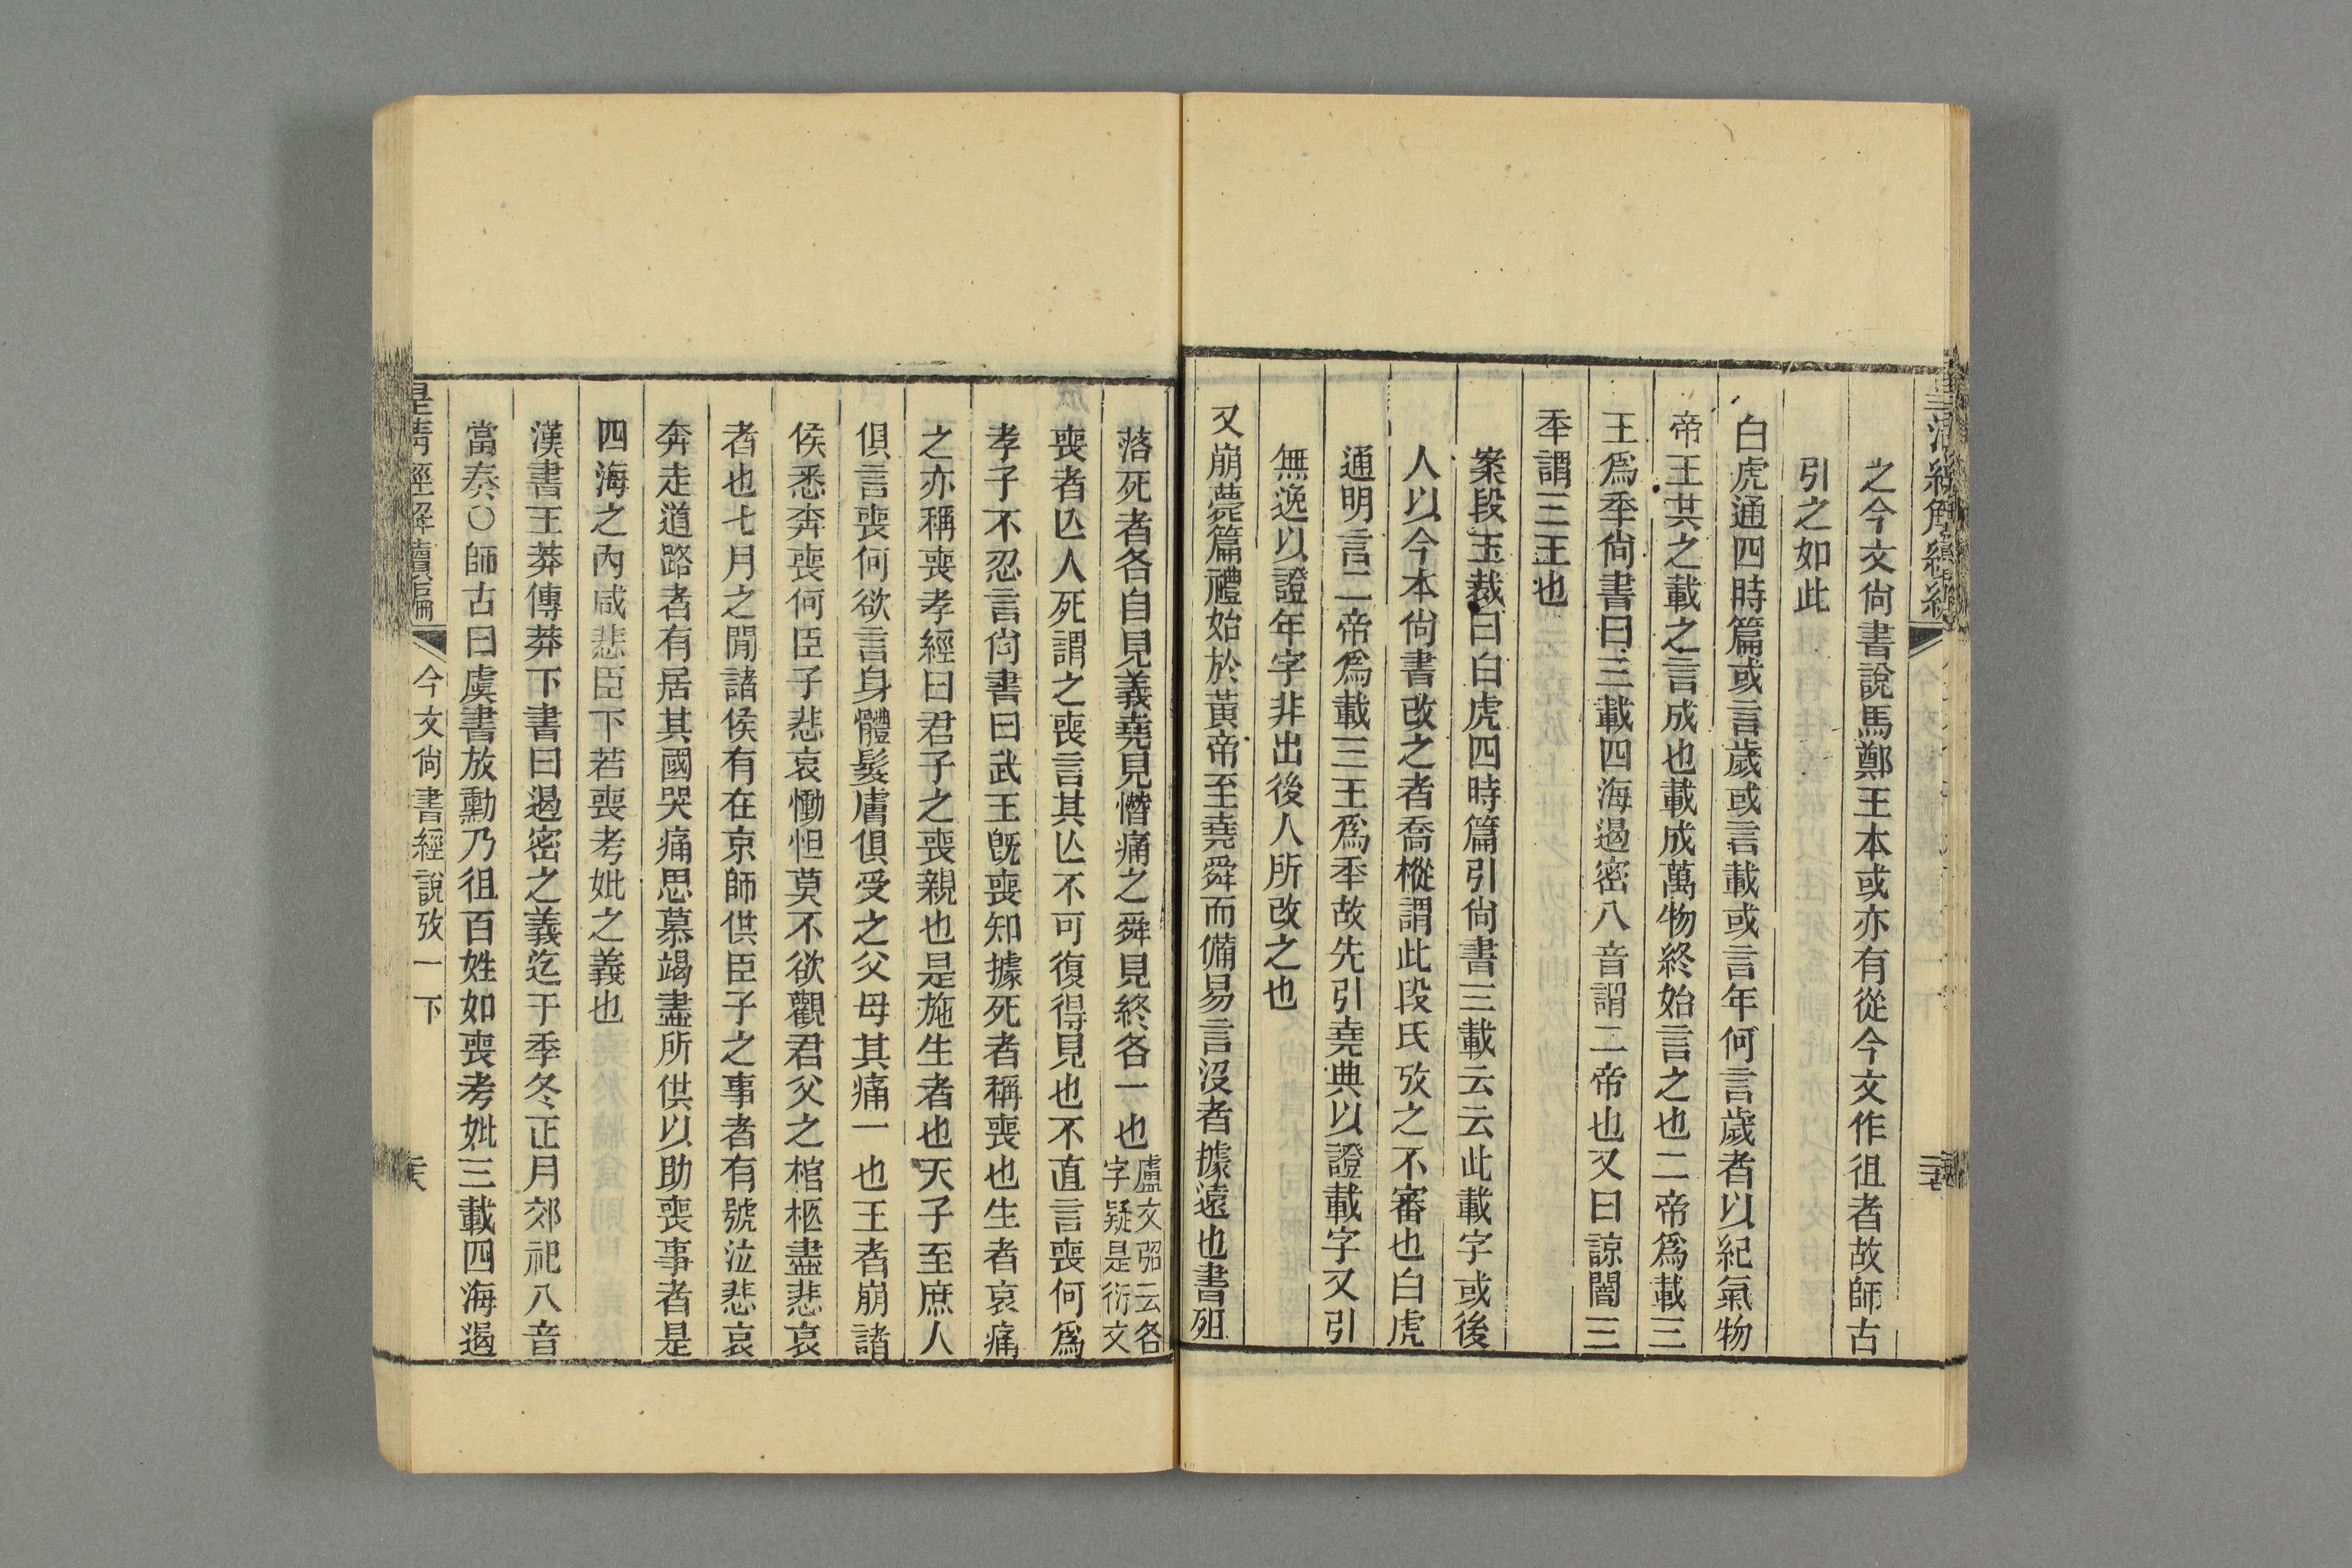 之今文尙書說馬鄭王本或亦有從今文作徂者故師古
引之如此
白虎通四時篇或言歲或言載或言年何言歲者以紀氣物
帝王共之載之言成也載成萬物終始言之也二帝爲載三
王爲秊尙書曰三載四海遏密八音謂二帝也又曰諒闇三
秊謂三王也
案段玉裁曰白虎四時篇引尙書三載云云此載字或後
人以今本尙書改之者喬樅謂此段氏攷之不審也白虎
通明言二帝爲載三王爲秊故先引堯典以證載字又引
無逸以證年字非出後人所改之也
又崩薨篇禮始於黃帝至堯舜而備易言沒者據遠也書殂
落死者各自見義堯見憯痛之舜見終各一也盧文弨云各字疑是衍文
喪者亾人死謂之喪言其亾不可復得見也不直言喪何爲
孝子不忍言尙書曰武王旣喪知據死者稱喪也生者哀痛
之亦稱喪孝經曰君子之喪親也是施生者也天子至庶人
俱言喪何欲言身體髮膚俱受之父母其痛一也王者崩諸
侯悉奔喪何臣子悲哀慟怛莫不欲觀君父之棺柩盡悲哀
者也七月之閒諸侯有在京師供臣子之事者有號泣悲哀
奔走道路者有居其國哭痛思慕竭盡所供以助喪事者是
四海之內咸悲臣下若喪考妣之義也
漢書王莽傳莽下書曰遏密之義迄于季冬正月郊祀八音
當奏〇師古曰虞書放勳乃徂百姓如喪考妣三載四海遏
皇淸經解續編 今文尙書經說攷一下